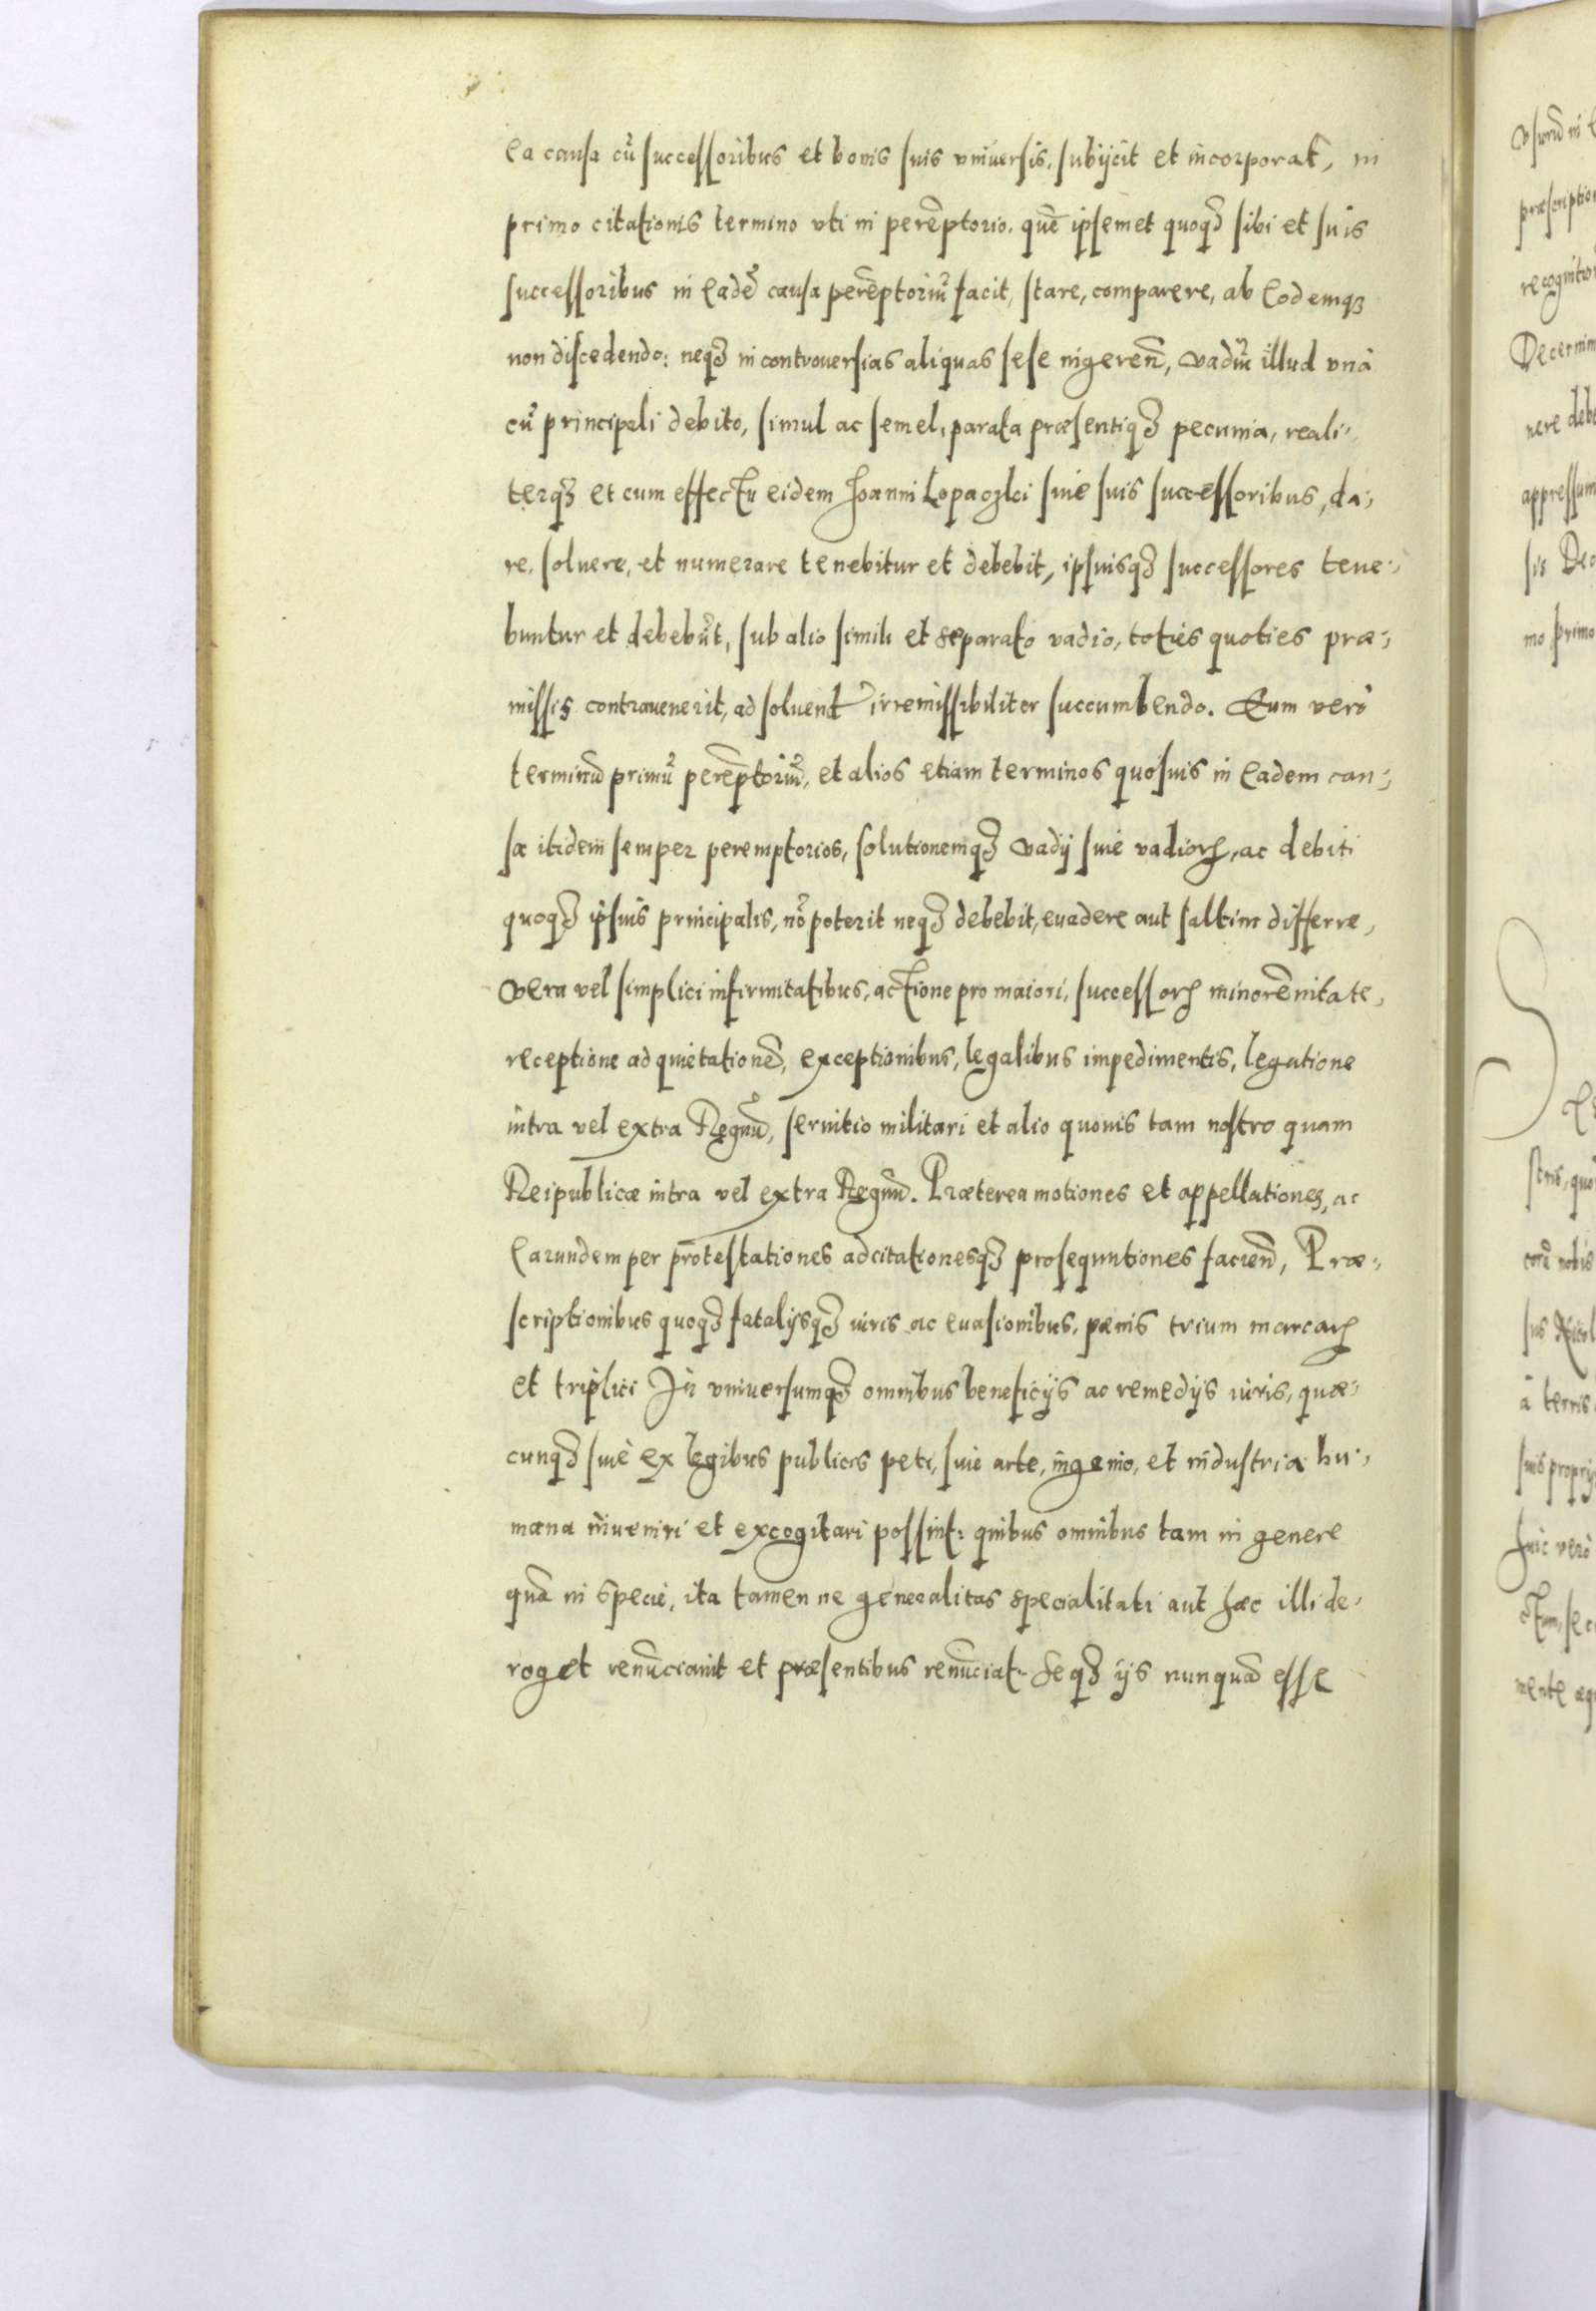 ea causa cũ successoribus et bonis suis vniuersis, subijcit et incorporat, in
primo citationis termino vti in perẽptorio, quẽ ipsemet quoqȝ sibi et suis
successoribus in eadẽ causa perẽptoriũ facit, stare, comparere, ab eodemqȝ
non discedendo: neqȝ in controuersias aliquas sese ingereñ, vadiũ illud vnà
cũ principali debito, simul ac semel, parata præsentiqȝ pecunia, reali-
terqȝ et cum effectu eidem Joanni Lopaczkci siue suis successoribus, da-
re, soluere, et numerare tenebitur et debebit, ipsiusqȝ successores tene-
buntur et debebũt, sub alio simili et separato vadio, toties quoties præ-
missis contrauenerit, ad soluend irremissibiliter succumbendo. Eum verò
terminũ primũ perẽptoriũ, et alios etiam terminos quosuis in eadem cau-
sa itidem semper peremptorios, solutionemqȝ vadij siue vadioꝝ, ac debiti
quoqȝ ipsius principalis, nõ poterit neqȝ debebit, euadere aut saltim differre,
vera vel simplici infirmitatibus, actione pro maiori, successoꝝ minorẽnitate,
receptione ad quietationẽ, exceptionibus, legalibus impedimentis, legatione
intra vel extra Regnũ, seruitio militari et alio quouis tam nostro quam
Reipublicæ intra vel extra Regnũ. Præterea motiones et appellationes, ac
earundem per protestationes adcitationesqȝ prosequutiones facieñ, Præ-
scriptionibus quoqȝ fatalijsqȝ iuris ac euasionibus, pœnis trium marcaꝝ
et triplici In vniuersumqȝ omnibus beneficijs ac remedijs iuris, quæ-
cunqȝ siuè ex legibus publicis peti, siue arte, ingenio, et industria hu-
mana inueniri et excogitari possint: quibus omnibus tam in genere
quã in specie, ita tamen ne generalitas specialitati aut hæc illi de-
roget renũciauit et præsentibus renũciat. Seqȝ ijs nunquã esse